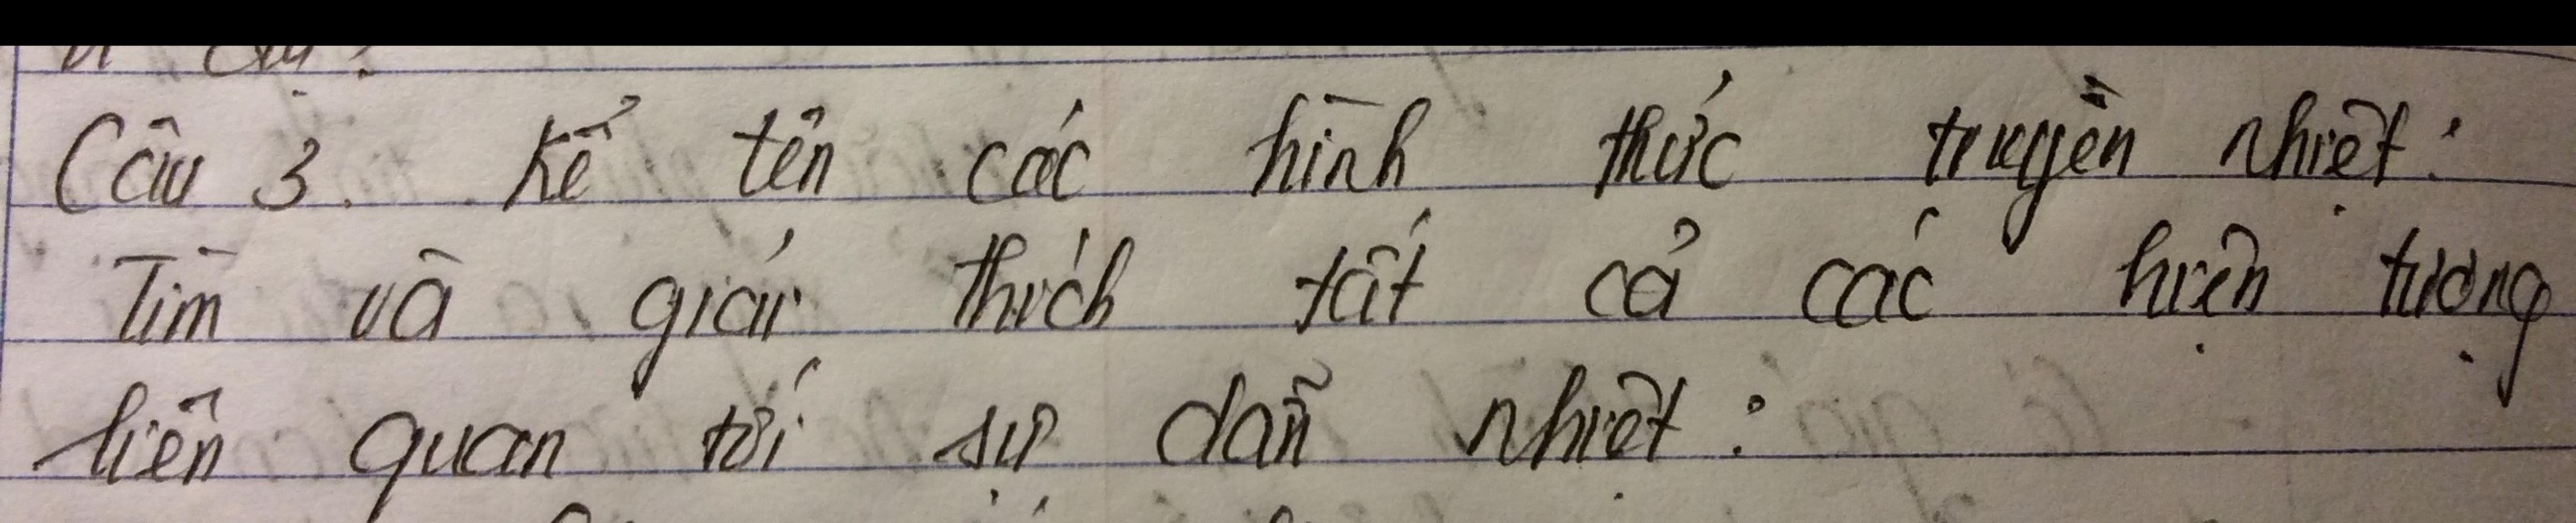 Câu 3. Kể tên các hình thức truyền nhiệt:
Tìm và giải thích tất cả các hiện tượng
liên quan tới sự dẫn nhiệt: